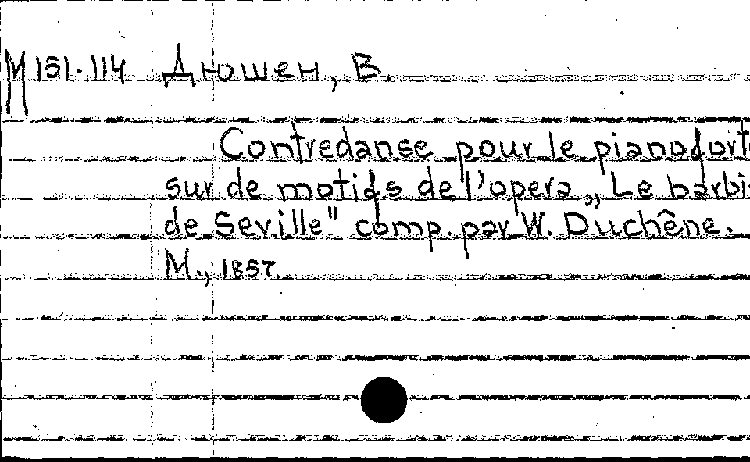 М 151-114 Дюшен, В.
Contredanse pour le pianofort
sur de motifs de l'opera „Le barbi
de Seville" comp. par W. Duchêne.
М., 1857